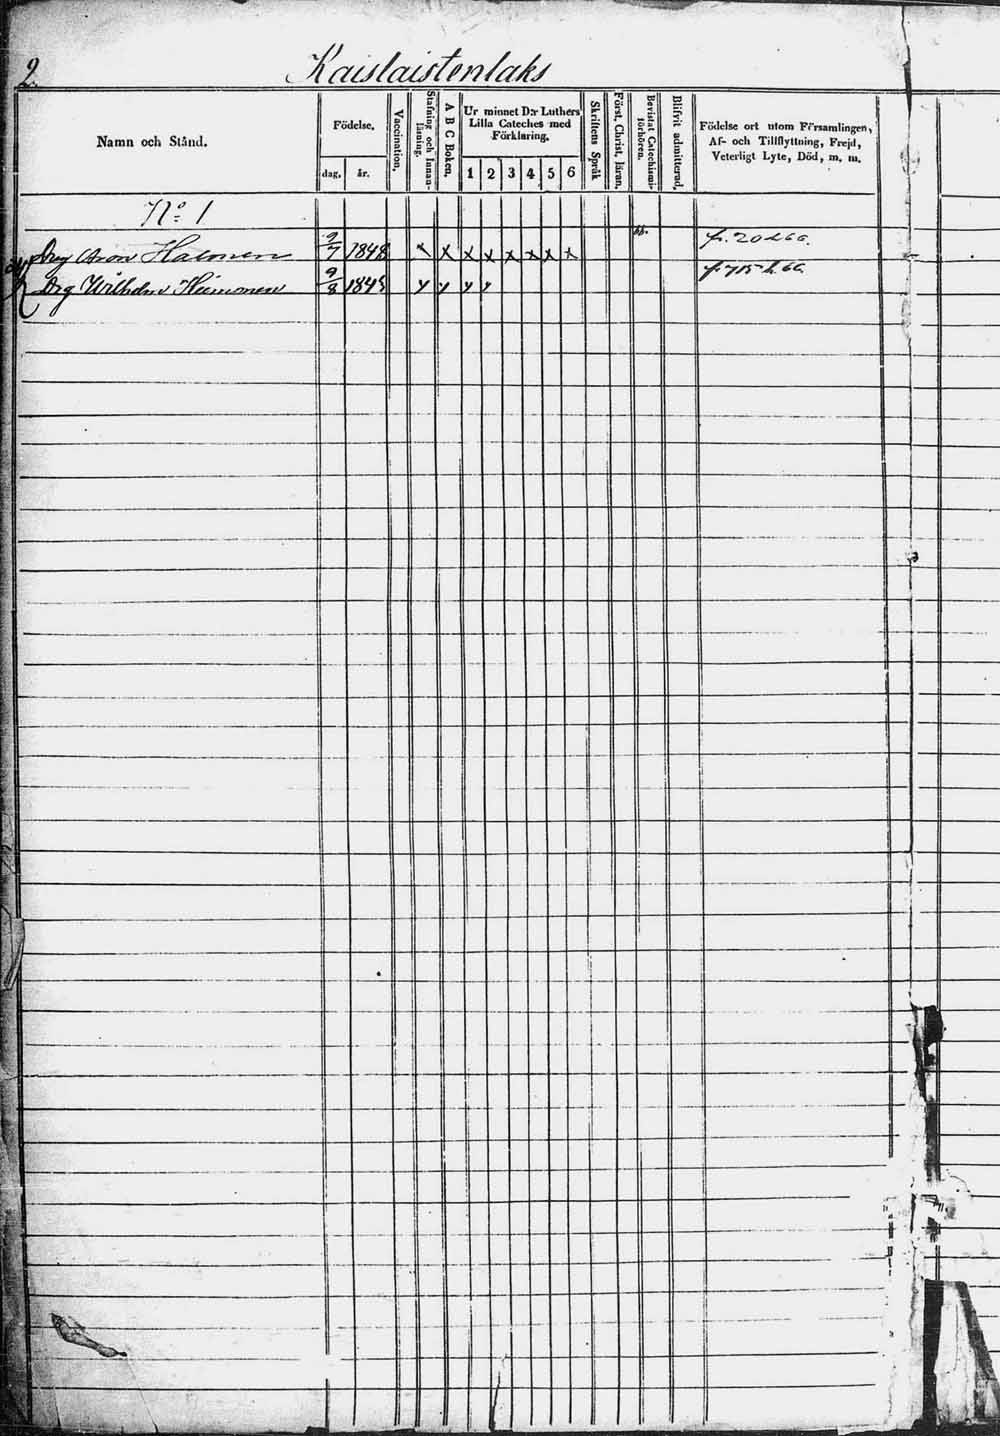 2.
Kaislaistenlaks
Namn och Stånd.
Födelse.
dag. år.
Vaccination.
Stafning och Innan-
läsning.
A B C Boken.
Ur minnet D:r Luthers
Lilla Cateches med
Förklaring.
1 2 3 4 5 6
Skriftens Språk
Först. Christ. läran.
Bevistat Catechismi-
förhören.
Blifvit admitterad.
Födelse ort utom Församlingen,
Af- och Tillflyttning, Frejd,
Veterligt Lyte, Död, m. m.
No 1
Drg Aron 9/7 1848 x x x x x x x x
Drg Wilhelm 9/8 1845 y y y y